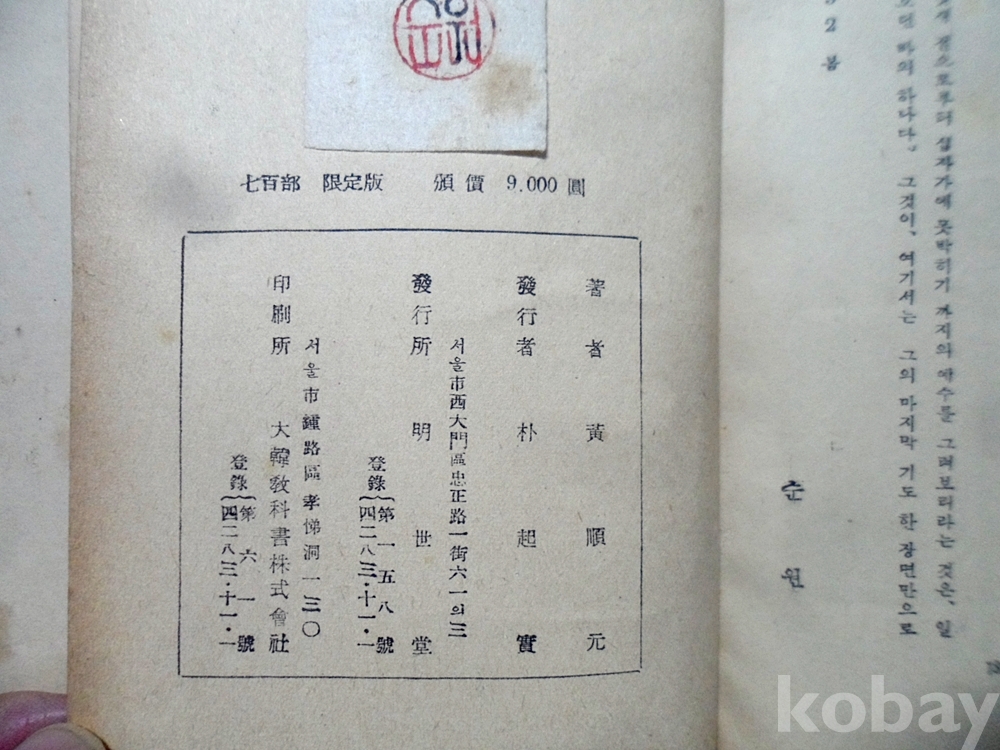 七百部 限定版 頒價 9.000圓
著者 黃順元
發行者 朴起實
서울市西大門區忠正路一街六一의三
發行所 明世堂
登錄 第一五八號 四二八三·十一·一
서울市鍾路區孝悌洞一三〇
印刷所 大韓敎科書株式會社
登錄 第六一號 四二八三·十一·一
점으로부터 십자가에 못박히기 까지의 예수를 그려보리라는 것은, 일
보던 바의 하나다. 그것이, 여기서는 그의 마지막 기도 한 장면만으로
2 봄
순원
kobay